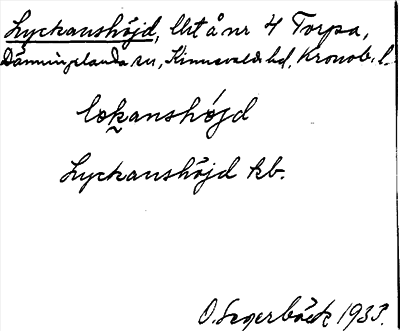 Lyckanshöjd, Urt å nr 4 Torpa,
Dänningelanda sn, Kinnevalds hd, Kronob. l.
lo̰kanshǿjd
Lyckanshöjd kb.
O. Segerbäck 1933.